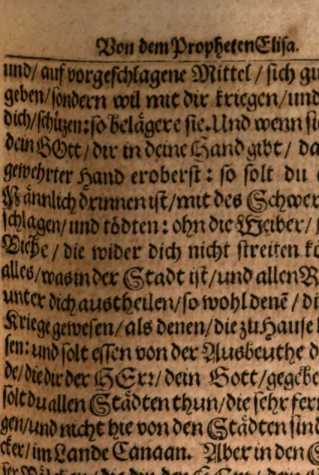 Von dem Propheten Elisa.
und/ auf vorgeschlagene Mittel / sich gu
geben/ sondern wil mit dir kriegen/ und
dich/ schützen: so belägere sie. Und wenn sie
dein GOtt/ dir in deine Hand gibt/ da
gewehrter Hand eroberst: so solt du
Männlich drinnen ist/ mit des Schwer
schlagen/ und tödten: ohn die Weiber/
Viehe / die wider dich nicht streiten kö
alles/ was in der Stadt ist/ und allen R
unter dich austheilen/ so wohl denē / di
Kriege gewesen/ als denen/ die zu Hause
sen: und solt essen von der Ausbeuthe d
de/ die dir der HErr/ dein Gott/ gegebe
solt du allen Städten thun/ die sehr fer
gen/ und nicht hie von den Städten sind
cker/ im Lande Canaan. Aber in den S